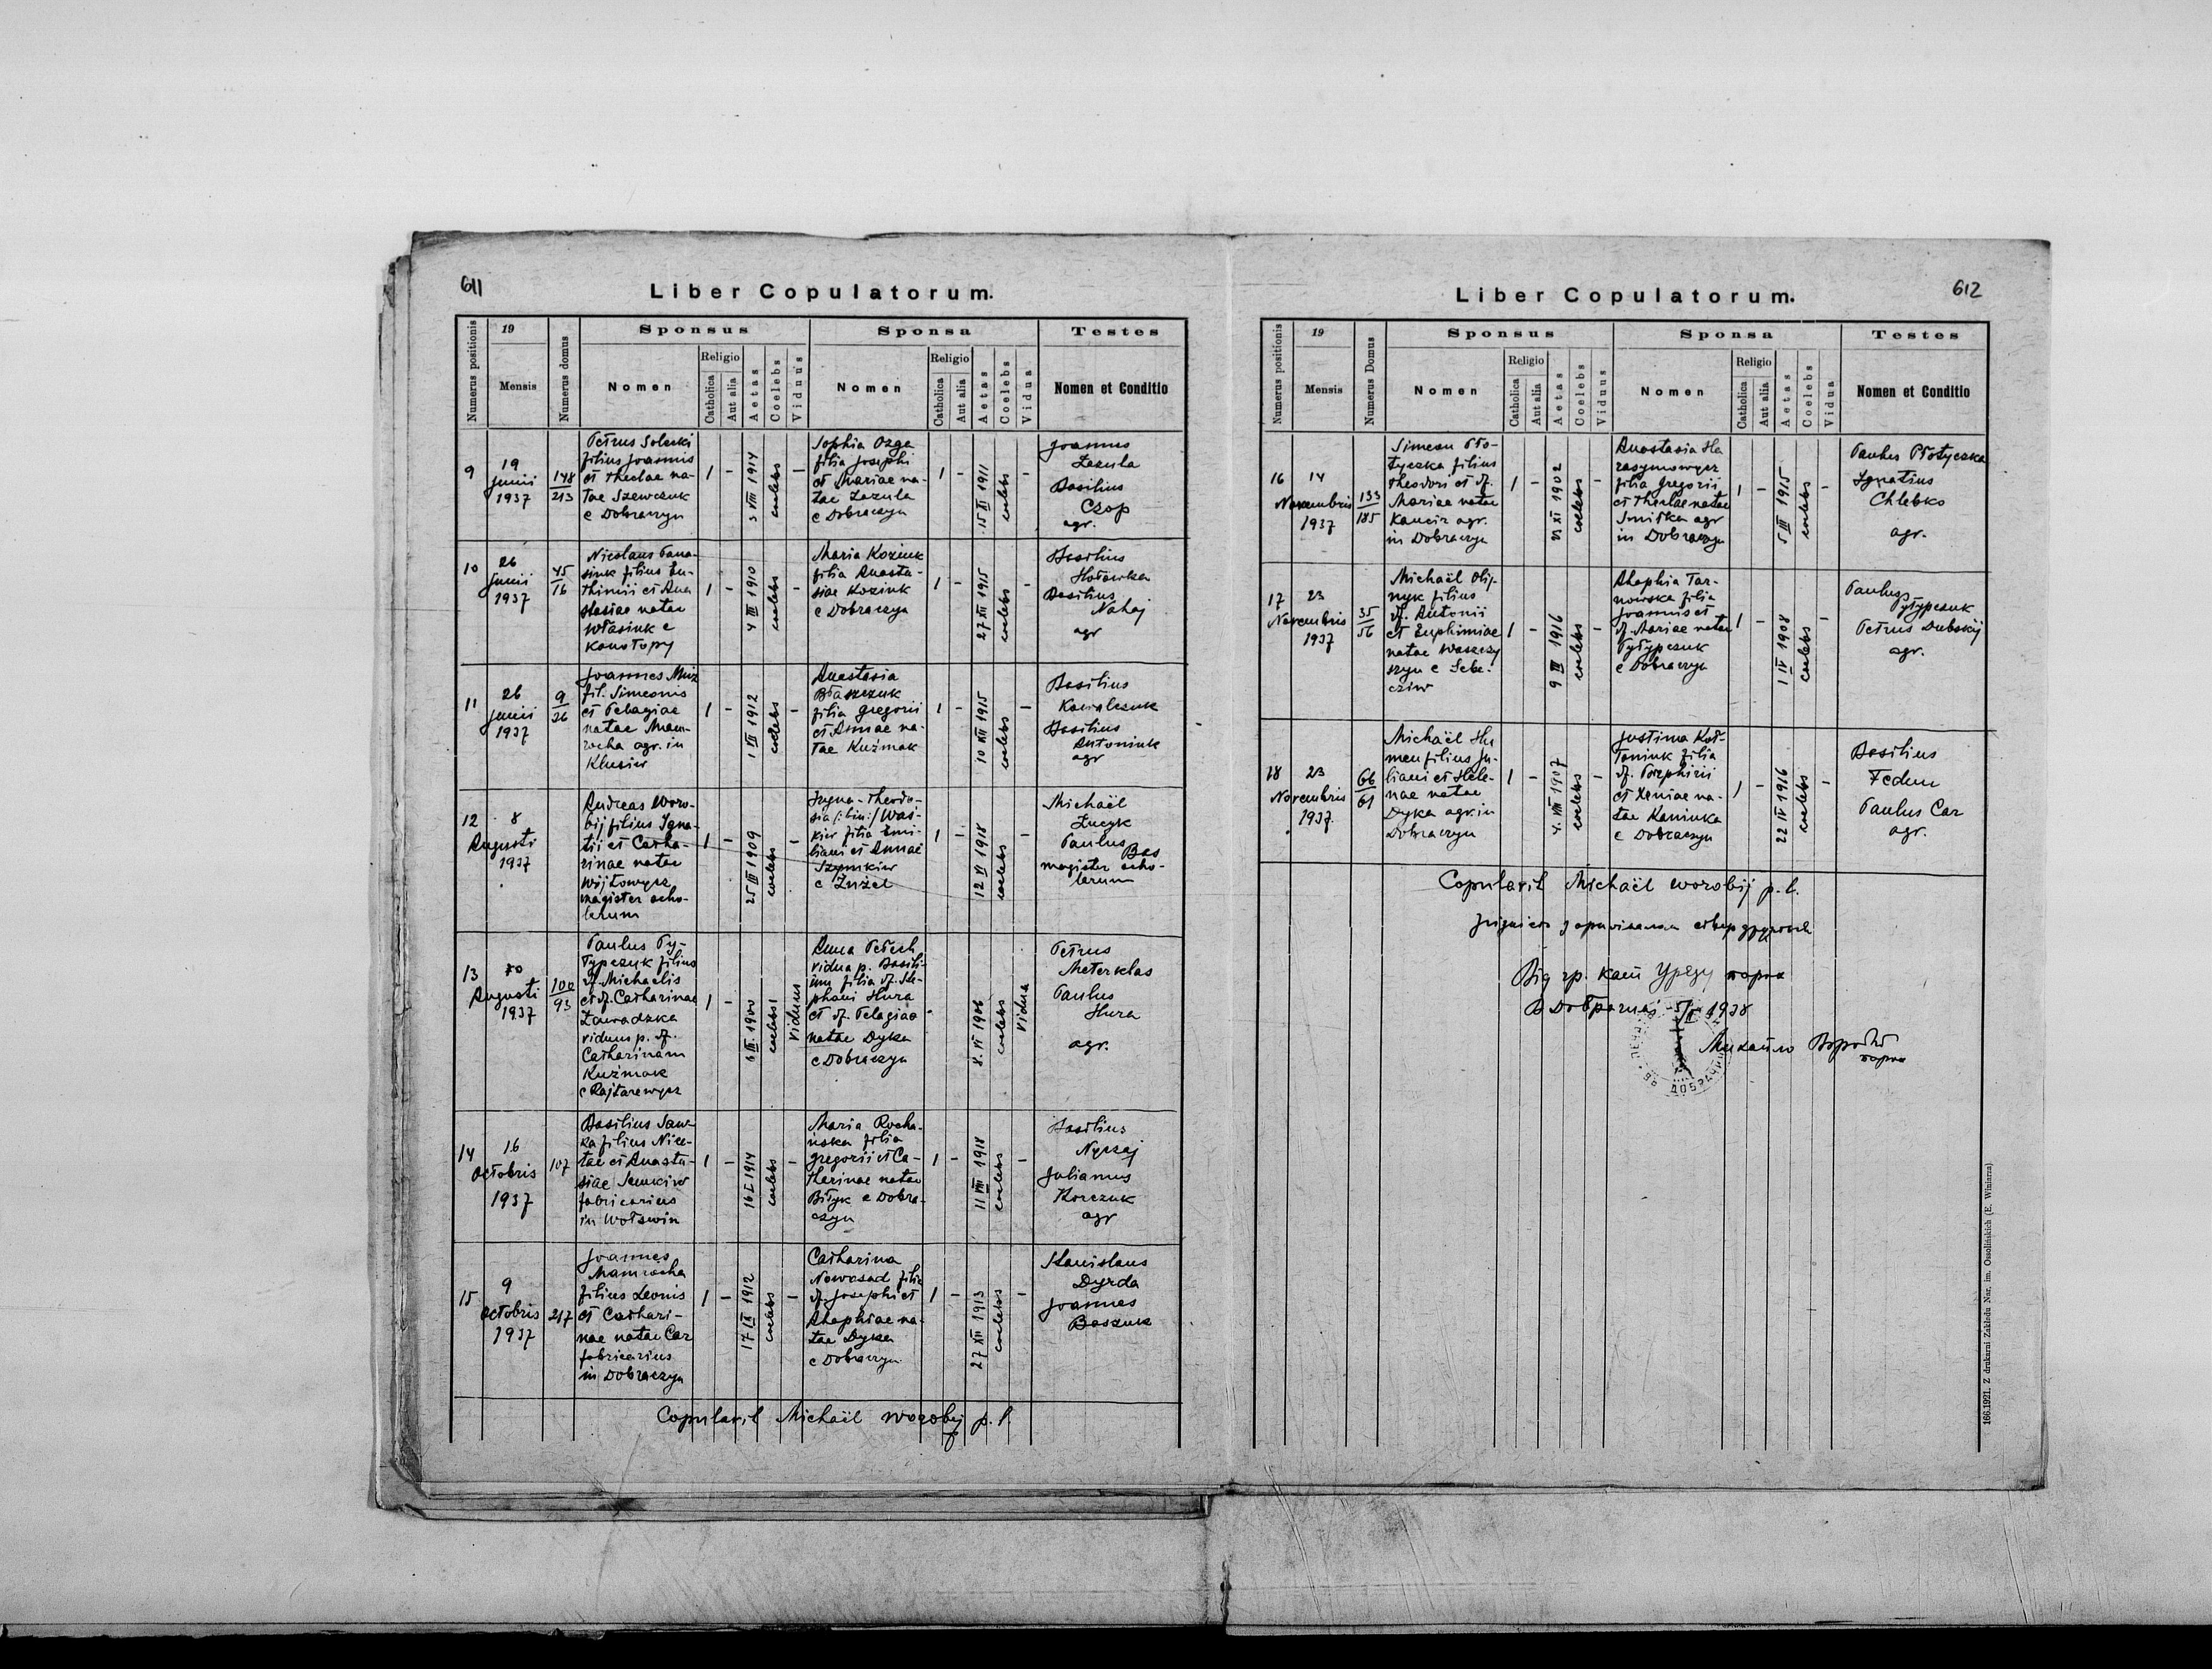 611
Liber Copulatorum.
Numerus positionis
19
Mensis
Numerus domus
Sponsus
Nomen
Religio
Catholica
Aut alia
Aetas
Coelebs
Viduus
Sponsa
Nomen
Religio
Catholica
Aut alia
Aetas
Coelebs
Vidua
Testes
Nomen et Conditio
9
19
Junii
1937
148
213
Petrus Solecki
filius Joannis
et Theclae na-
tae Szewczuk
e Dobraczyn
1
-
3 VIII 1914
coelebs
-
Sophia Ozga
filia Josephi
et Mariae na-
tae Zazula
e Dobraczyn
1
-
15 XI 1911
coelebs
-
Joannes
Zazula
Basilius
Czop
agr.
10
26
Junii
1937
45
16
Nicolaus Pana-
siuk filius Eu-
thimii et Ana
stasiae natae
Własiuk e
Konotopy
1
-
4 III 1910
coelebs
-
Maria Koziuk
filia Anasta-
siae Koziuk
e Dobraczyn
1
-
27 XII 1915
coelebs
-
Basilius
Hołowka
Basilius
Nahaj
agr
11
26
Junii
1937
9
26
Joannes
fil. Simeonis
et Pelagiae
natae Mam-
rocha agr. in
Klusiw
1
-
1 VII 1912
coelebs
-
Anastasia
Błaszczuk
filia Gregorii
et Annae na-
tae Kuźmak
1
-
10 XII 1915
coelebs
-
Basilius
Kowalczuk
Basilius
Antoniuk
agr
12
8
Augusti
1937
Andreas Woro-
bij filius Igna-
tii et Catha-
rinae natae
Wójtowycz
magister scho-
larum
1
-
25 III 1909
coelebs
-
Iryna-Theodo-
sia /: bin :/ Waś-
kiw filia Emi-
liani et Annae
Szymkiw
e Żużel
1
-
12 VI 1918
coelebs
-
Michaël
Łucyk
Paulus
Bas
magister scho-
larum
13
Augusti
1937
100
93
Paulus Py-
łypczuk filius
df. Michaelis
et df. Catharinae
Zawadzka
viduus p. df.
Catharinam
Kuźmak
e Rajtarewycz
1
-
6 III 1900
coelebs
Viduus
Anna Petech
vidua p. Basili-
um filia df. Ste-
phani Hura
et df. Pelagiae
natae Dyka
e Dobraczyn
8. VI 1906
coelebs
Vidua
Petrus
Meterklas
Paulus
Hura
agr.
14
16
Octobris
1937
107
Basilius Saw-
ka filius Nice-
tae et Anasta-
siae Senkiw
fabricarius
in Wolswin
1
-
16 I 1914
coelebs
-
Maria Rocha-
ńska filia
Gregorii et Ca-
tharinae natae
Biłyk e Dobra-
czyn
1
-
11 VIII 1918
coelebs
-
Basilius
Nyczaj
Julianus
Korczuk
agr
15
9
Octobris
1937
217
Joannes
Mamrocha
filius Leonis
et Cathari-
nae natae Car
fabricarius
in Dobraczyn
1
-
17 IX 1912
coelebs
-
Catharina
Nowosad filia
df. Josephi et
Ahaphiae na-
tae Dyka
e Dobraczyn
1
-
27 XII 1913
coelebs
-
Stanislaus
Dyrda
Joannes
Baszuk
Copulavit Michaël Worobij p. l.
612
Liber Copulatorum.
Numerus positionis
19
Mensis
Numerus Domus
Sponsus
Nomen
Religio
Catholica
Aut alia
Aetas
Coelebs
Viduus
Sponsa
Nomen
Religio
Catholica
Aut alia
Aetas
Coelebs
Vidua
Testes
Nomen et Conditio
16
14
Novembris
1937
133
185
Simeon Pło-
tyczka filius
Theodori et df.
Mariae natae
Kancir agr.
in Dobraczyn
1
-
23 XI 1902
coelebs
-
Anastasia Ha
rasymowycz
filia Gregorii
et Theclae natae
Smitka agr
in Dobraczyn
1
-
5 III 1915
coelebs
-
Paulus Płotyczka
Ignatius
Chlebko
agr.
17
23
Novembris
1937
35
56
Michaël Olij-
nyk filius
df. Antonii
et Euphimiae
natae Waszczy
szyn e Sebe-
cziw
1
-
9 III 1916
coelebs
-
Ahaphia Tar-
nowska filia
Joannis et
df. Mariae natae
Pyłypczuk
e Dobraczyn
1
-
1 IV 1908
coelebs
-
Paulus
Pyłypczuk
Petrus Dubskij
agr.
18
23
Novembris
1937
66
61
Michaël Hu
men filius Ju-
liani et Hele-
nae natae
Dyka agr. in
Dobraczyn
1
-
4. VIII 1907
coelebs
-
Justina Koł-
toniuk filia
df. Porphirii
et Xeniae na-
tae Kaminka
e Dobraczyn
1
-
22 IV 1916
coelebs
-
Basilius
Fedun
Paulus Car
agr.
Copulavit Michaël Worobij p. l.
Від гр. кат. Уряду пароха
В Добрачині 1938
Михайло Воробій
парох
166.1921. Z drukarni Zakładu Nar. im. Ossolińskich (E. Winiarza)